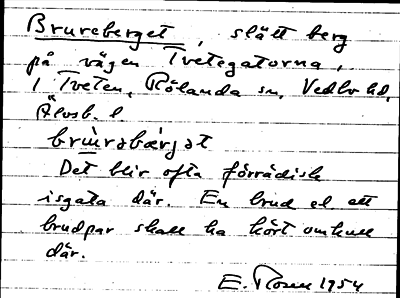 Brureberget, slätt berg
på vägen Tvetegatorna,
1 Tveten, Rölanda sn, Vedbo hd,
Älvsb. l
brùrabærjət
Det blir ofta förrädisk
isgata där. En brud el ett
brudpar skall ha kört omkull
där.
E. Rosen 1954